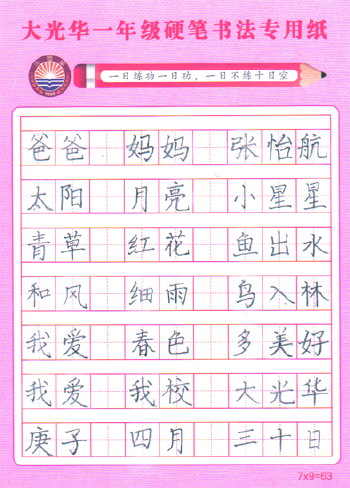 大光华一年级硬笔书法专用纸
一日练功一日功，一日不练十日空
爸爸 妈妈 张怡航
太阳 月亮 小星星
青草 红花 鱼出水
和风 细雨 鸟入林
我爱 春色 多美好
我爱 我校 大光华
庚子 四月 三十日
7x9=63